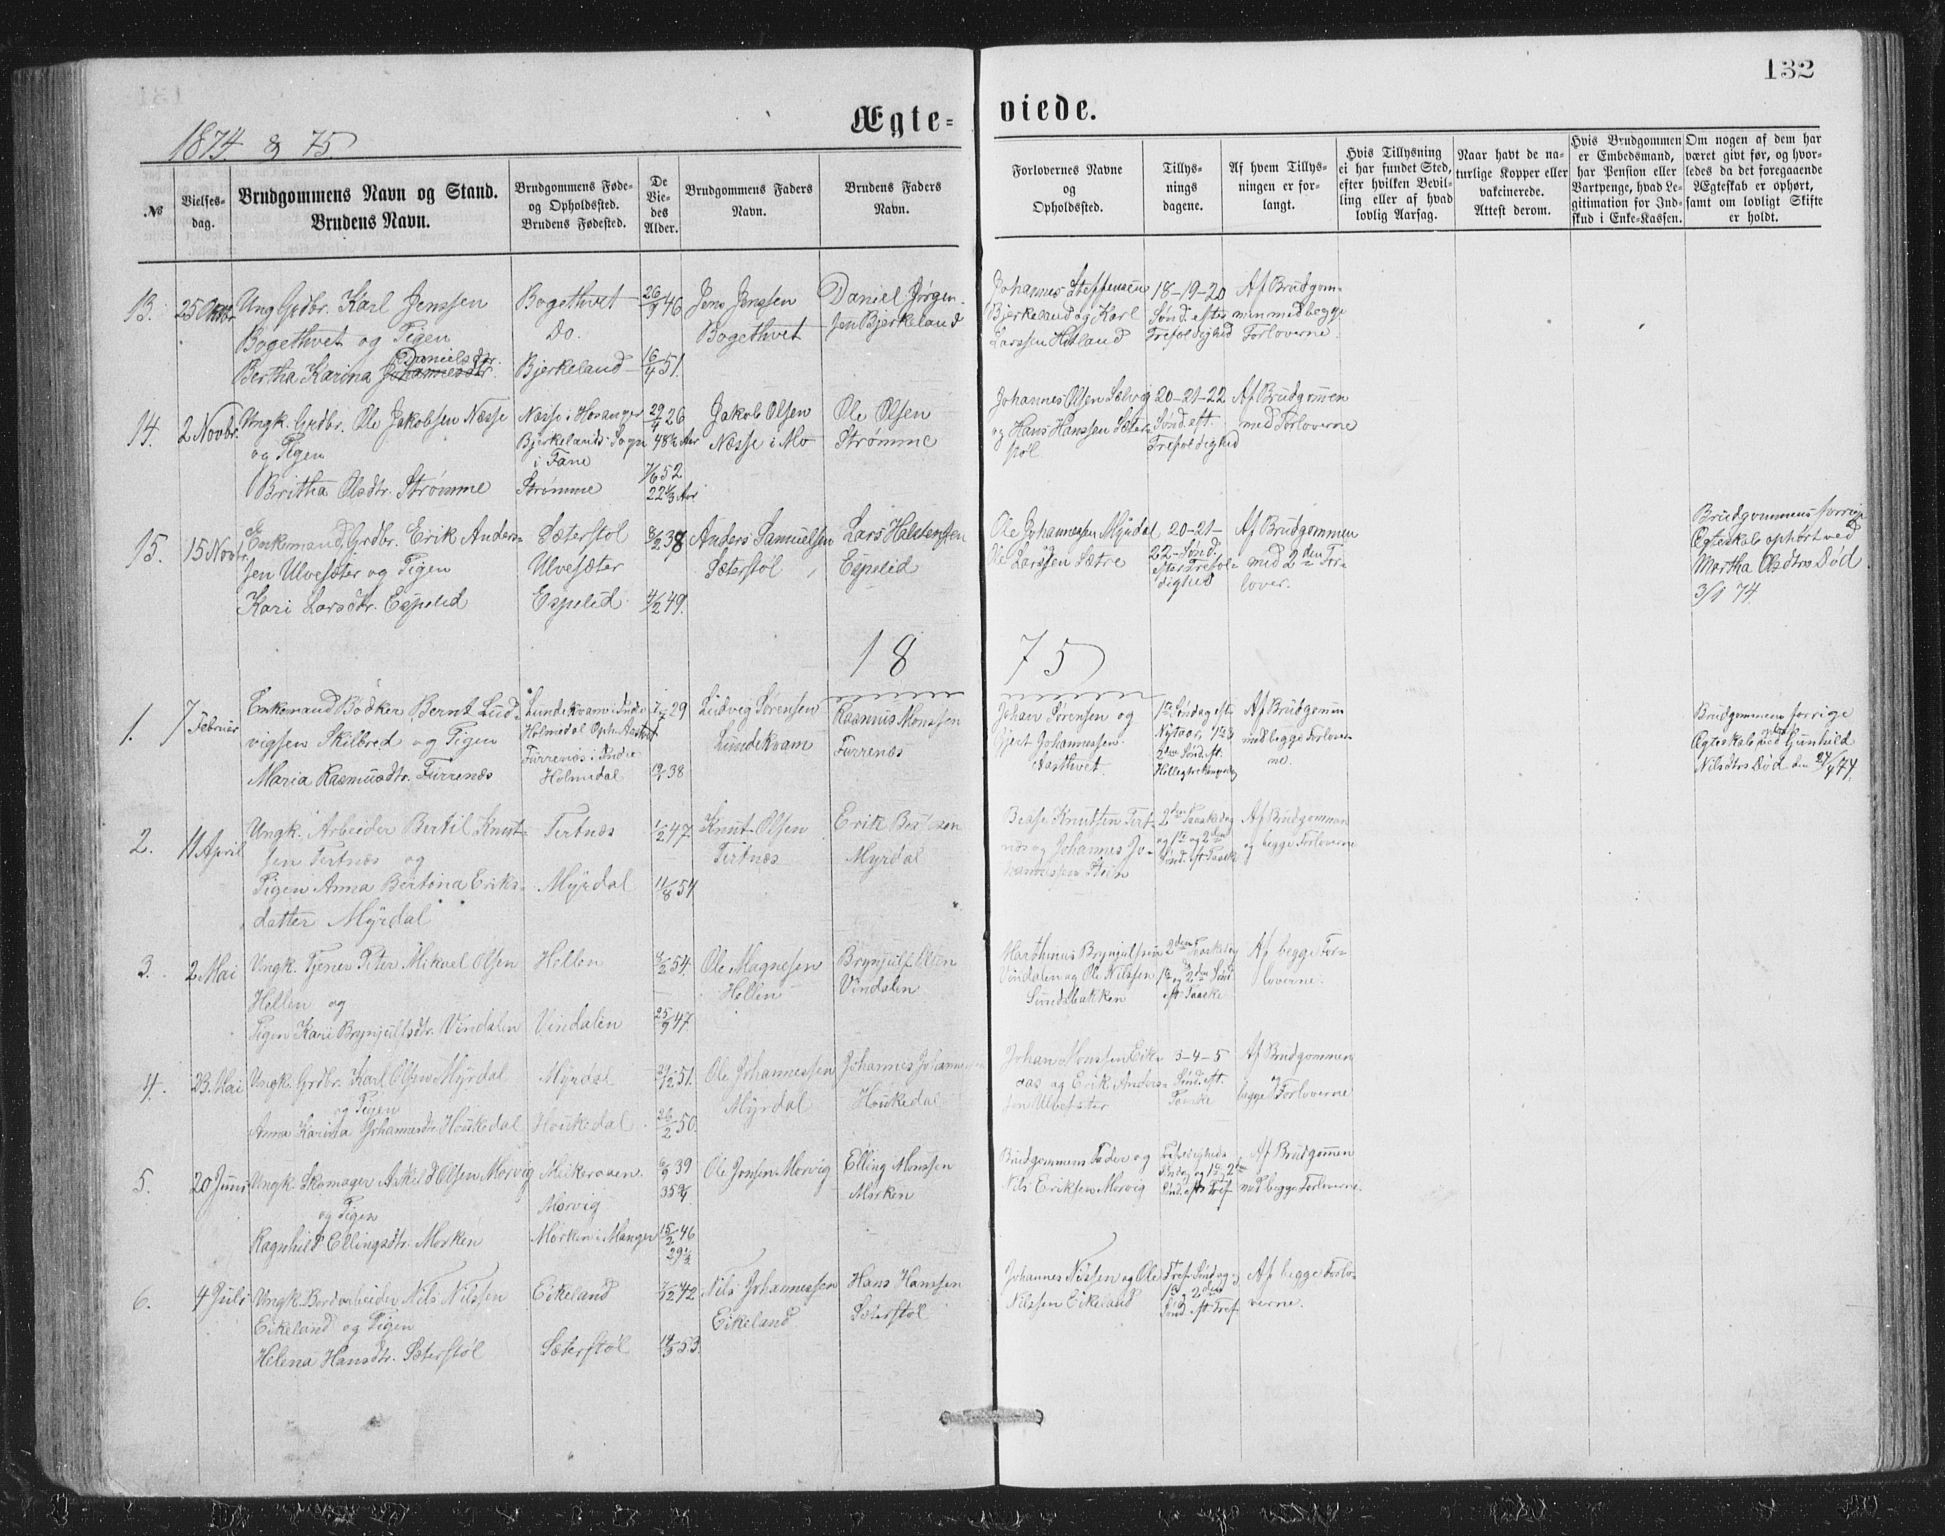 132
Ægte-
viede.
1874 & 75.
№
Vielses-
dag.
Brudgommens Navn og Stand.
Brudens Navn.
Brudgommens Føde-
og Opholdssted.
Brudens Fødested.
De
Vie-
des
Alder.
Brudgommens Faders
Navn.
Brudens Faders
Navn.
Forlovernes Navne
og
Opholdssted.
Tillys-
nings
dagene.
Af hvem Tillys-
ningen er for-
langt.
Hvis Tillysning
ei har fundet Sted,
efter hvilken Bevil-
ling eller af hvad
lovlig Aarsag.
Naar havt de na-
turlige Kopper eller
vakcinerede.
Attest derom.
Hvis Brudgommen
er Embedsmand,
har Pension eller
Vartpenge, hvad Le-
gitimation for Ind-
skud i Enke-Kassen.
Om nogen af dem har
været givt før, og hvor-
ledes da det foregaaende
Ægteskab er ophørt,
samt om lovligt Skifte
er holdt.
13.
25 Oktbr
Ung Grdbr. Karl Jenssen
Bogethvet og Pigen
Danielsdtr.
Bertha Karina Johannesdtr.
Bogethvet
Do.
Bjerkeland
26/9 46
16/4 51.
Jens Jenssen
Bogethvet
Daniel Jørgen-
sen Bjerkeland
Johannes Steffensen
Bjerkeland og Karl
Larssen Hetland
18-19-20
Sønd. efter
Trefoldighed
Af Brudgom-
men med begge
Forloverne.
14.
2 Novbr.
Ungk. Grdbr. Ole Jakobsen Næsse
og Pigen
Britha Olsdtr. Strømme
Næsse i Hosanger
Bjerkelands Sogn
i Fane
Strømme
26
48½ Aar
52
22⅓ Aar
Jakob Olsen
Næsse i Mo
Ole Olsen
Strømme
Johannes Olsen Sælvig
og Hans Hanssen Sæter-
støl
20-21-22
Sønd. eft.
Trefoldighed
Af Brudgommen
med Forloverne
15.
15 Novbr.
Enkemand Grdbr. Erik Anders-
sen Ulvesæter og Pigen
Kari Larsdtr. Espelid
Sæterstøl
Ulvesæter
Espelid
38
49.
Anders Samuelsen
Sæterstøl
Lars Halstensen
Espelid
Ole Johannessen Myrdal
og
Ole Larssen Sætre
20-21-
22-Sønd.
efter Trefol-
dighed
Af Brudgommen
med 2den For-
lover.
Brudgommens forrige
Ægteskab ophørt ved
Martha Olsdtrs Død
3/1 74
1875
1.
7 Februar
Enkemand Bødker Bernt Lud-
vigsen Skilbred og Pigen
Maria Rasmusdtr. Furrenæs
Lundekvam i Indre
Holmedal Oph. Aasthvet
Furrenæs i Indre
Holmedal
29
38
Ludvig Sørensen
Lundekvam
Rasmus Monssen
Furrenæs
Johan Sørensen og
Johannessen
Aasthvet.
1ste Søndag eft.
Nytaar,
2den Sønd. eft.
Helligtrekongersdag
Af Brudgomm
med begge Forlover-
ne.
Brudgommens forrige
Ægteskab ved Gunhild
Nilsdtrs Død den 24/4 74.
2.
11 April
Ungk. Arbeider Bertil Knut-
sen Tertnæs og
Pigen Anna Bertona Eriks-
datter Myrdal
Tertnæs
Myrdal
47
11/8 54
Knut Olsen
Tertnæs
Erik Bertilsen
Myrdal
Knutsen Tert-
næs og Johannes Jo-
hannessen
2den Paaskedag
og 1ste og 2den
Sønd. eft Paaske
Af Brudgommen
og begge Forloverne
3.
2 Mai
Ungk. Tjener Peter Mikael Olsen
Hellen og
Pigen Kari Brynjulfsdtr. Vindalen
Hellen
Vindalen
54.
25/9 47.
Ole Magnesen
Hellen
Brynjulf Olsen
Vindalen
Marthinus Brynjulfsen
Vindalen og Ole Nilssen
Sundsbakken
2den Paaskedag
1ste og 2den Sønd
eft Paaske
Af begge For-
loverne.
4.
23 Mai
Ungk. Grdbr. Karl Olsen Myrdal
og Pigen
Anna Karina Johannesdtr Houkedal
Myrdal
Houkedal
29/12 51.
26/2 50.
Ole Johannessen
Myrdal
Johannes Johannessen
Houkedal
Johan Monssen Eik-
aas og Erik Anders-
sen Ulvesæter
3-4-5
Sønd. eft.
Paaske
Af Brudgommen
begge Forloverne
5.
20 Juni
Ungk. Skomager Askild Olsen Morvig
og Pigen
Ragnhild Ellingsdtr. Morken
Morvig
Morken i Manger
39
35¾
15/2 46
29⅓
Ole Jonsen Morvig
Elling Monssen
Morken
Brudgommens Fader og
Nils Eriksen Morvig
Trefoldigheds
Søndag og 1ste 2den
Sønd. eft Tref.
Af Brudgommen
med begge Forloverne.
6.
4 Juli
Ungk. Bordarbeider Nils Nilssen
Eikeland og Pigen
Helena Hansdtr. Sæterstøl
Eikeland
Sæterstøl
42
14/3 53.
Nils Johannessen
Eikeland
Hans Hanssen
Sæterstøl
Johannes Nilssen og Ole
Nilssen Eikeland
Tref. Søndag og
1ste 2den
Sønd. eft Tref.
Af begge Forlo-
verne.